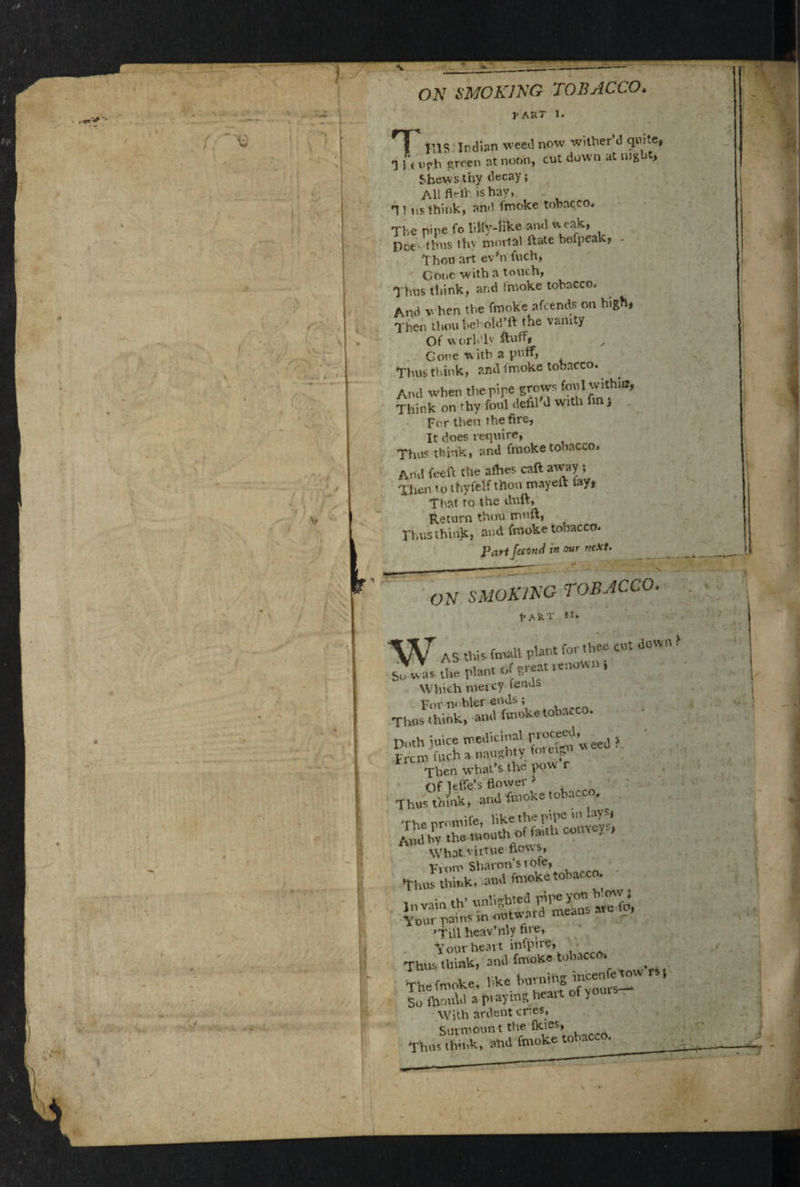 ON SMOKING TOBACCO.
PART I.
THIS Indian weed now wither'd quite,
Though green at noon, cut down at night,
Shews thy decay;
All flesh is hay,
Thus think, and smoke tobacco.
The pipe so lilly-like and weak,
Does thus thy mortal state bespeak,
Thou art ev'n such,
Gone with a touch,
Thus think, and smoke tobacco.
And when the smoke ascends on high,
Then thou behold'st the vanity
Of worldly stuff,
Gone with a puff,
Thus think, and smoke tobacco.
And when the pipe grows foul within,
Think on thy soul defil'd with sin;
For then the fire,
It does require,
Thus think, and smoke tobacco.
And seest the ashes cast away;
Then to thyself thou mayest say,
That to the dust,
Return thou must,
Thus think, and smoke tobacco.
Part second in our next.
ON SMOKING TOBACCO.
PART II.
WAS this small plant for thee cut down?
So was the plant of great renown;
Which mercy sends
For nobler ends;
Thus think, and smoke tobacco.
Doth juice medicinal proceed,
From such a naughty foreign weed?
Then what's the pow'r
Of Jesse's flower?
Thus think, and smoke tobacco.
The promise, like the pipe in lays,
And by the mouth of faith conveys,
What virtue flows,
From Sharon's rose,
Thus think, and smoke tobacco.
In vain th' unlighted pipe you blow;
Your pains in outward means are so,
'Till heav'nly fire,
Your heart inspire,
Thus think, and smoke tobacco.
The smoke, like burning incense tow'rs;
So should a praying heart of yours—
With ardent cries,
Surmount the skies,
Thus think, and smoke tobacco.